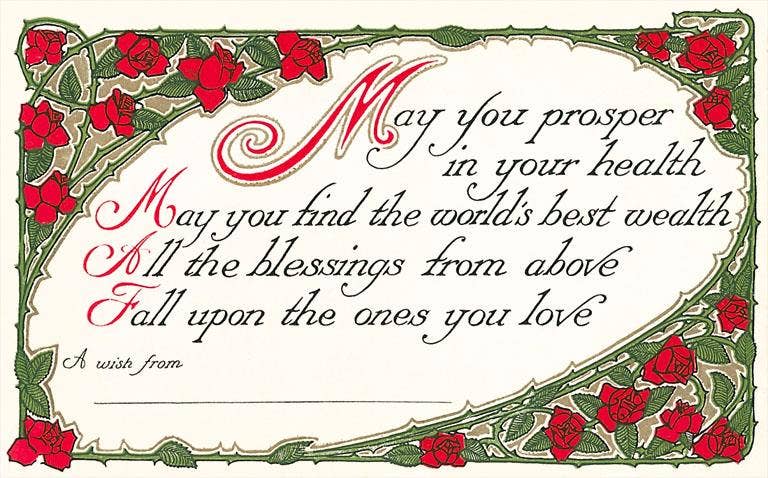 May you prosper
in your health
May you find the world's best wealth
All the blessings from above
Fall upon the ones you love
A wish from